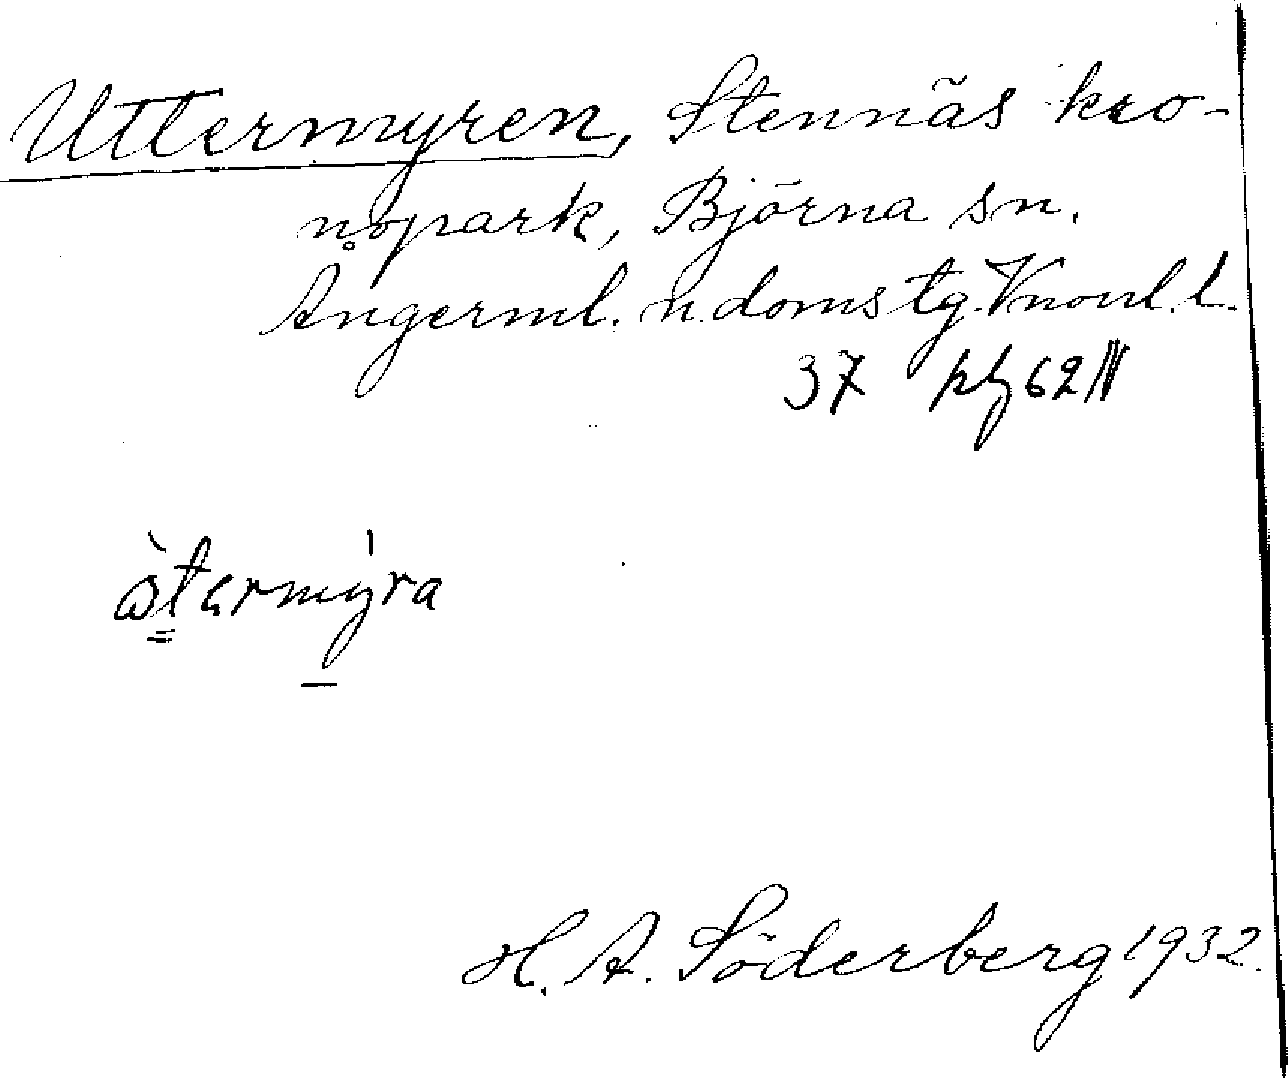 Uttermyren, Stennäs kro-
nopark, Björna sn.
Ångerml. n. domstg. Vnorrl. l.
37 plq 62 IV
H. A. Söderberg 1932.